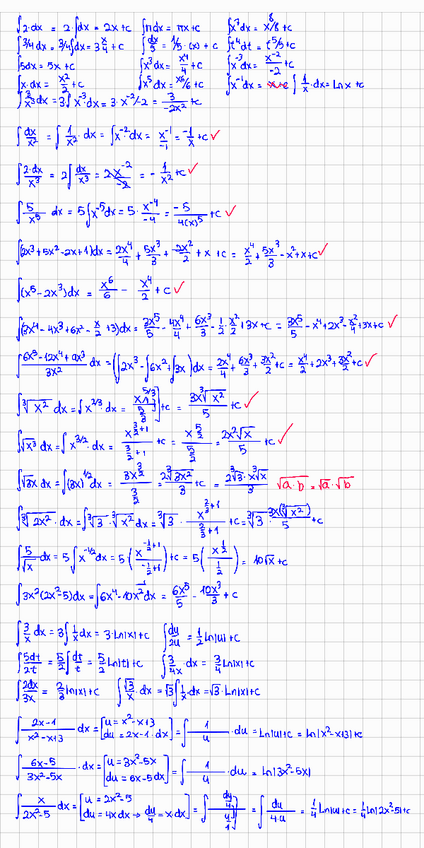 ∫2·dx = 2·∫dx = 2x+c ∫πdx = πx+c ∫x⁷dx = x⁸/8+c
∫3/4 dx = 3/4∫dx = 3x/4+c ∫dx/5 = 1/5·(x)+c ∫t⁴dt = t⁵/5+c
∫5dx = 5x+c ∫x³dx = x⁴/4+c ∫x⁻³dx = x⁻²/-2+c
∫x·dx = x²/2+c ∫x⁵dx = x⁶/6+c ∫x⁻¹dx = ∫1/x·dx = Ln x+c
∫3/x³dx = 3∫x⁻³dx = 3·x⁻²/-2 = 3/-2x²+c
∫dx/x² = ∫1/x²·dx = ∫x⁻²dx = x⁻¹/-1 = -1/x+c ✓
∫2·dx/x³ = 2∫dx/x³ = 2x⁻²/-2 = -1/x²+c ✓
∫5/x⁵ dx = 5∫x⁻⁵dx = 5·x⁻⁴/-4 = -5/4(x)⁵+c ✓
∫(2x³+5x²-2x+1)dx = 2x⁴/4+5x³/3+-2x²/2+x+c = x⁴/2+5x³/3-x²+x+c ✓
∫(x⁵-2x³)dx = x⁶/6-x⁴/2+c ✓
∫(3x⁴-4x³+6x²-x/2+3)dx = 3x⁵/5-4x⁴/4+6x³/3-1/2·x²/2+3x+c = 3x⁵/5-x⁴+2x³-x²/4+3x+c ✓
dx = (∫2x³-∫6x²+∫3x)dx = 2x⁴/4+6x³/3+3x²/2+c = x⁴/2+2x³+3x²/2+c ✓
∫∛x² dx = ∫x^2/3 dx = +c = 3x∛x²/5+c ✓
∫√x³ dx = ∫x^3/2 dx = x^(3/2+1)/(3/2+1)+c = x^5/2/(5/2) = 2x²√x/5+c ✓
∫√3x dx = ∫(3x)^1/2 dx = √a·b = √a·√b
∫∛2x² dx = ∫∛3·∛x² dx = ∛3·x^(2/3+1)/(2/3+1)+c = ∛3·3x(∛x²)/5+c
∫5/√x dx = 5∫x^-1/2 dx = 5(x^(-1/2+1)/(-1/2+1))+c = 5(x^1/2/(1/2)) = 10√x+c
∫3x²(2x²-5)dx = ∫6x⁴-10x²dx = 6x⁵/5-10x³/3+c
∫3/x dx = 3∫1/x dx = 3·Ln|x|+c ∫du/2u = 1/2 Ln|u|+c
∫5dt/2t = 5/2∫dt/t = 5/2 Ln|t|+c ∫3/4x dx = 3/4 Ln|x|+c
∫2dx/3x = 2/3 Ln|x|+c ∫√3/x·dx = √3∫1/x·dx = √3·Ln|x|+c
∫2x-1/x²-x+3 dx = [u = x²-x+3 du = 2x-1·dx] = ∫1/u·du = Ln|u|+c = Ln|x²-x+3|+c
∫6x-5/3x²-5x·dx = [u = 3x²-5x du = 6x-5dx] = ∫1/u·du = Ln|3x²-5x|
∫x/2x²-5 dx = [u = 2x²-5 du = 4x dx → du/4 = x·dx] = = ∫du/4u = 1/4 Ln|u|+c = 1/4 Ln|2x²-5|+c